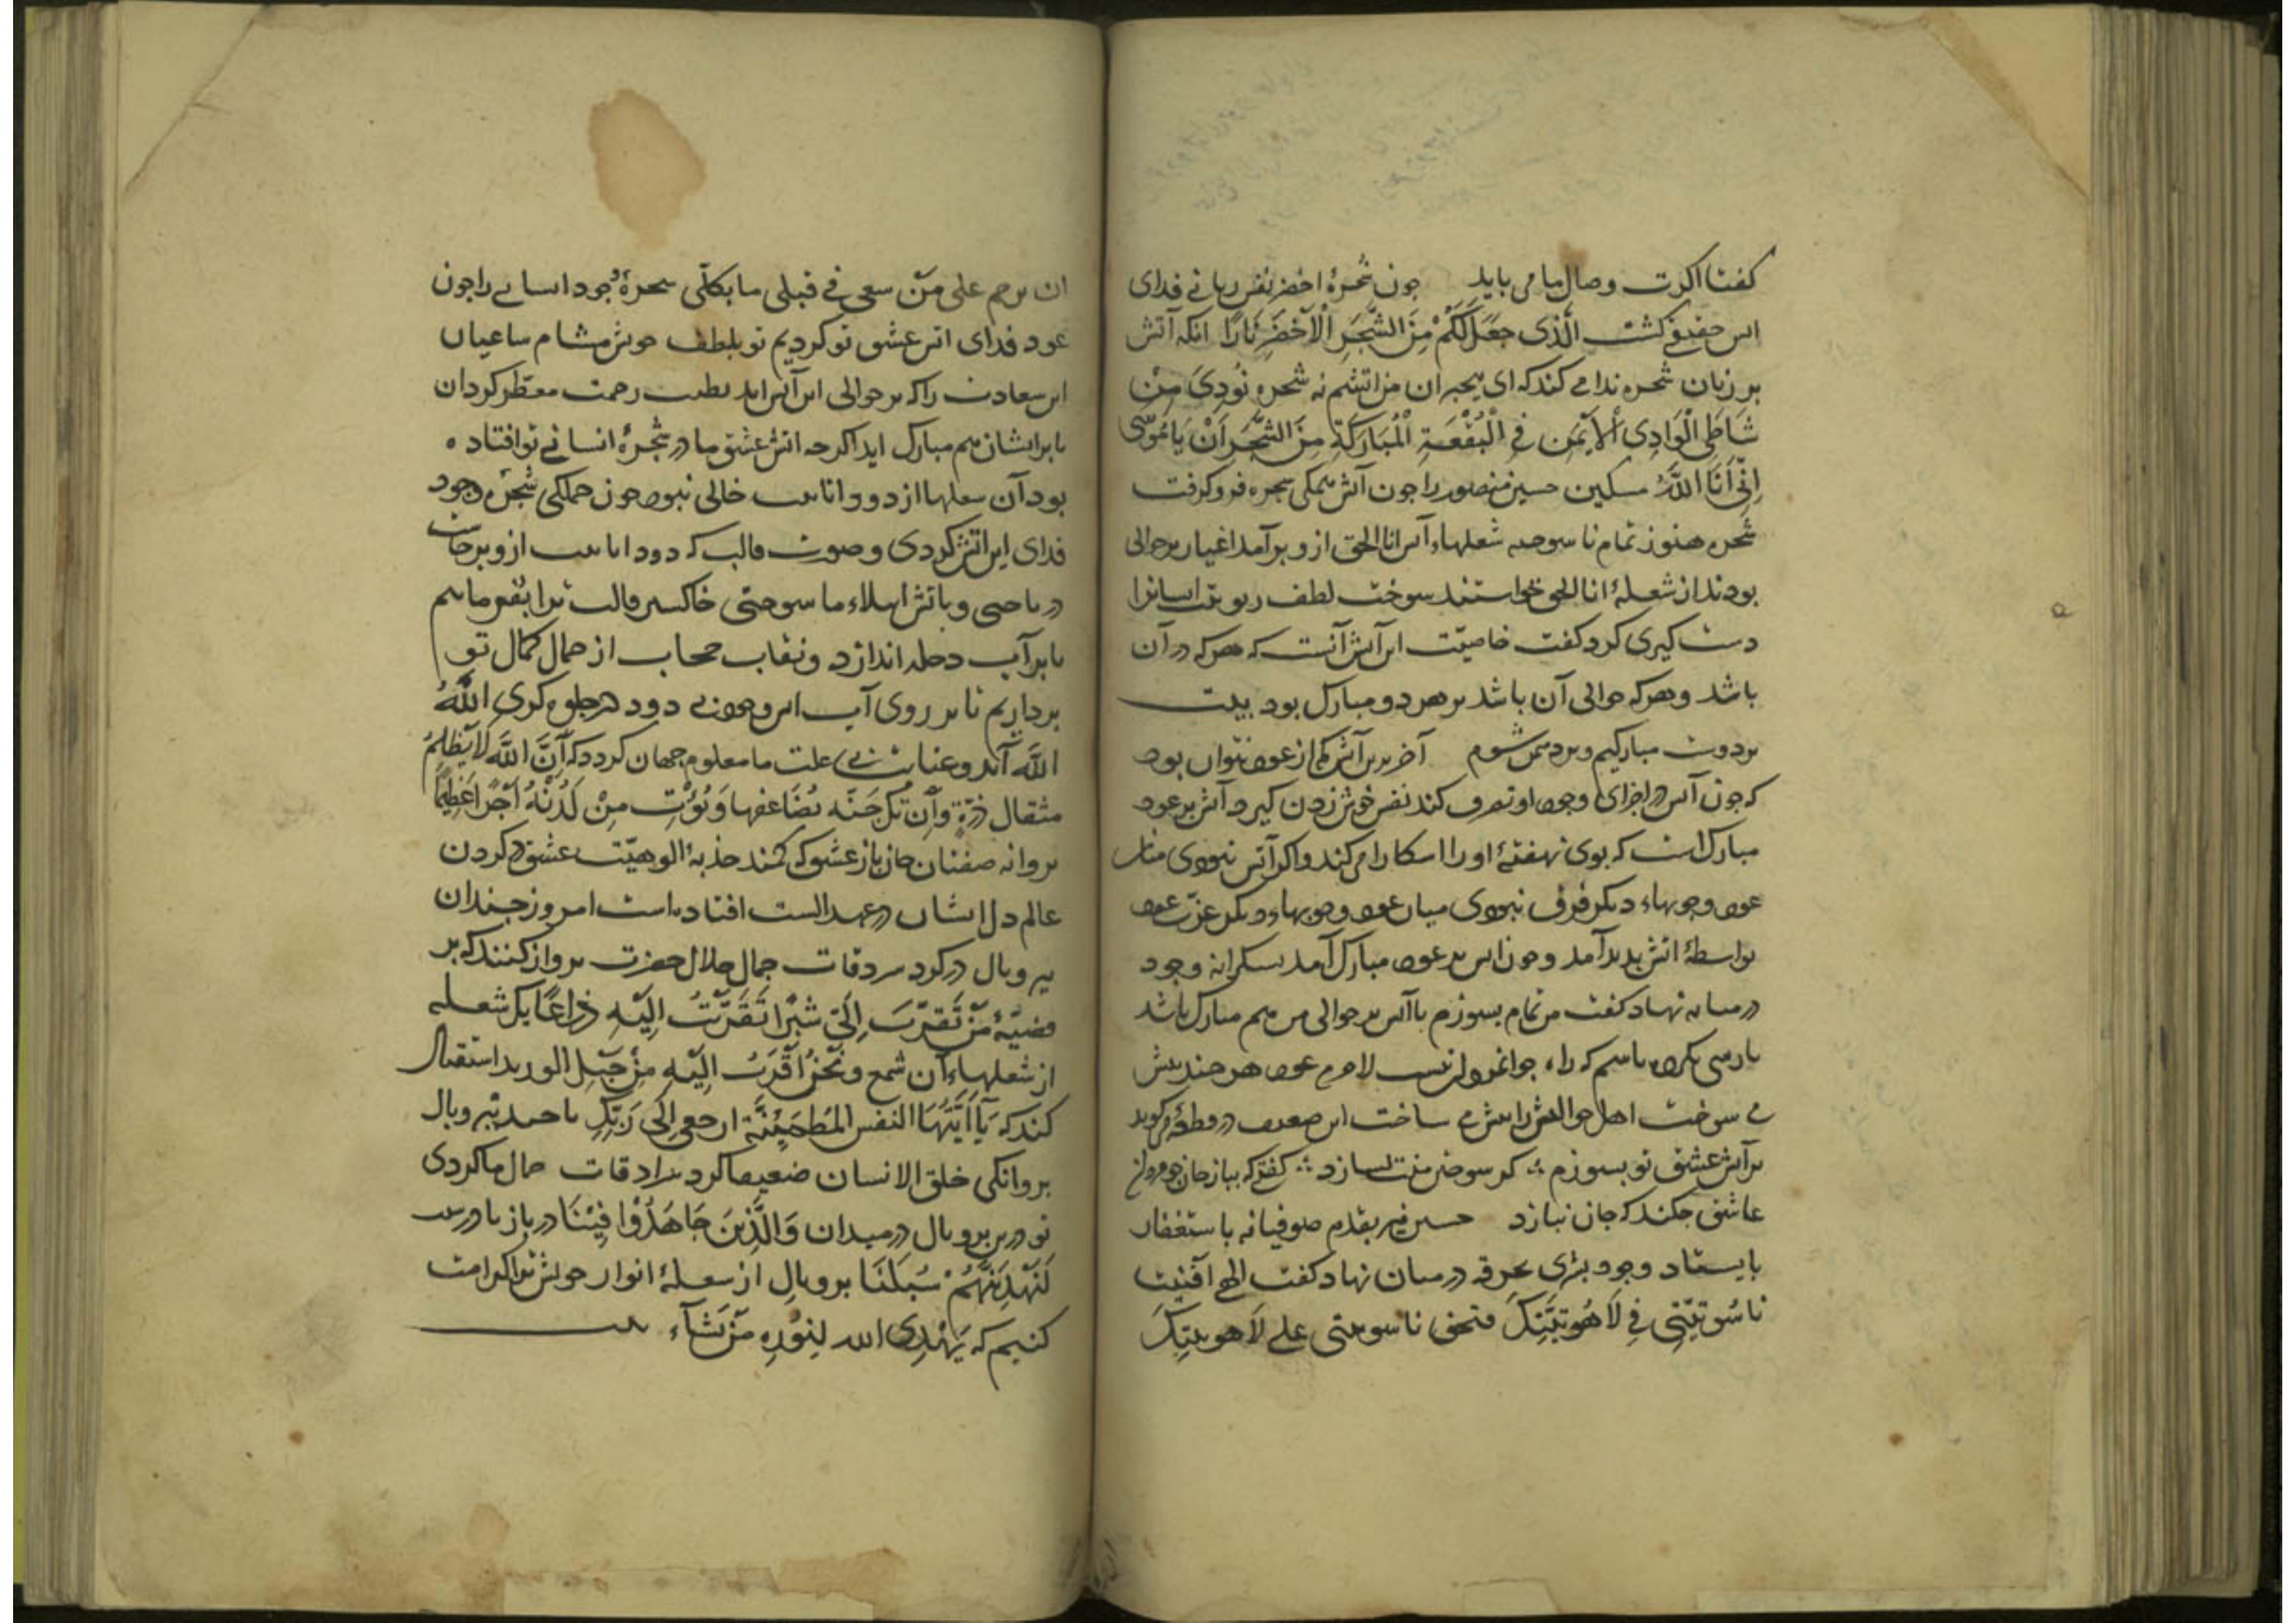 کفتا اکرت وصال ما می باید جون شجرهٔ اخضر نفس ربانی فدای
این حقیقی کشت الَّذی جَعَلَ لَکُمْ مِنَ الشَّجَرِ الْاَخْضَرِ نَارًا انکه آتش
بر زبان شجره ندا می کند که ای بیخبران من اتشم نه شجره نُودِیَ مِنْ
شَاطِئِ الْوَادِی الْاَیْمَنِ فِی الْبُقْعَةِ الْمُبَارَکَةِ مِنَ الشَّجَرِ اَنْ یَا مُوسَی
اِنِّی اَنَا اللّٰهُ مسکین حسین منصور را جون آتش همکی شجره فرو کرفت
شجره هنوز تمام نا سوخته شعلهاء انا الحق ازو برآمد اغیار بر حوالی
بودند از شعلهٔ انا الحق خواستند سوخت لطف ربوبیت ایشانرا
دست کیری کرد کفت خاصیّت این آتش آنست که هرکه در آن
باشد و هرکه حوالی آن باشد بر هر دو مبارک بود بیت
بر دوست مبارکیم و بر دشمن شوم آخر برین آتش کم از عود نتوان بود
که جون آتش در اجزای وجود او تصرف کند نفس خوش زدن کیرد آتش بر عود
مبارک است که بوی نهفتهٔ او را اشکارا می کند و اکر آتش نبودی میان
عود و جوبهاء دیکر فرق نبودی میان عود و جوبهاء دیکر عزت عود
بواسطهٔ اتش پدید آمد و جون اتش بر عود مبارک آمد بشکرانه وجود
در میانه نهاد کفت من تمام بسوزم تا آنکس بر حوالی من هم مبارک باشد
می سوخت اهل حوالیش را بیش می ساخت این ضعیف درین می کوید
بر آتش عشق تو بسوزم کر سوختن منت بسازد کفتی که بباز جان
عاشق جکند که جان نبازد حسین نیز بقدم صوفیانه باستغفار
بایستاد وجود بشری بخرقه در میان نهاد کفت الهی افنیت
نَاسُوتِیَّتِی فِی لَاهُوتِیَّتِکَ فبحق ناسوتیتی علی لَاهوتیتِکَ
ان ترحم علی مَنْ سعی فی قتلی ما بکلّی شجرهٔ وجود انسانی را جون
عود فدای اتش عشق تو کردیم تو بلطف خویش مشام ساعیان
این سعادت را که بر حوالی این آتش اند بطیب رحمت معطّر کردان
تا بر ایشان هم مبارک اید اکرجه اتش عشق ما در شجرهٔ انسانی تو افتاده
بود آن شعلها از دود انانیت خالی نبود جون جملکی شجره وجود
فدای این اتش کردی و صورت قالب که دود انانیت ازو برخاست
درباختی و باتش ابتلاء ما سوختی خاکستر قالب ترا بفرماییم
تا بر آب دجله اندازد و نقاب حجاب از جمال کمال تو
برداریم تا بر روی آب این وجود بی دود در جلوه کری اللّٰهُ
اللّٰهَ آید و عنایت بی علت ما معلوم جهان کردد که اَنَّ اللّٰهَ لَا یَظْلِمُ
مثقال ذرّةٍ وَاِنْ تَکُ حَسَنَة یُضَاعفها وَیُؤْتِ مِنْ لَدُنْهُ اَجْرًا عَظِیمًا
بروانه صفتان جان باز عشق که کمند جذبهٔ الوهیّت عشق در کردن
عالم دل ایشان در عهد الست افتاده است امروز جندان
ببر و بال در کرد سردقات جمال جلال حضرت برواز کنند که بر
قضیّهٔ مَنْ تَقَرَّبَ اِلَیَّ شِبْرًا تَقَرَّبْتُ اِلَیْهِ ذِرَاعًا یک شعله
از شعلهاء آن شمع وَنَحْنُ اَقْرَبُ اِلَیْهِ مِنْ حَبْلِ الورید استقبال
کند که یَآ اَیَّتُهَا النفس المُطْمَئِنَّة ارجعی اِلَی رَبِّکِ تا جند ببر و بال
بروانکی خلق الانسان ضعیفا کرد سرادقات جمال ما کردی
تو درین بر و بال در میدان وَالَّذِینَ جَاهَدُوْا فِیْنَا درباز تا درست
لَنَهْدِیَنَّهُمْ سُبُلَنَا بر و بالِ از شعلهٔ انوار خویش ترا کرامت
کنیم که یَهْدِی الله لِنُوْرِهِ مَنْ یَشَآء بیت